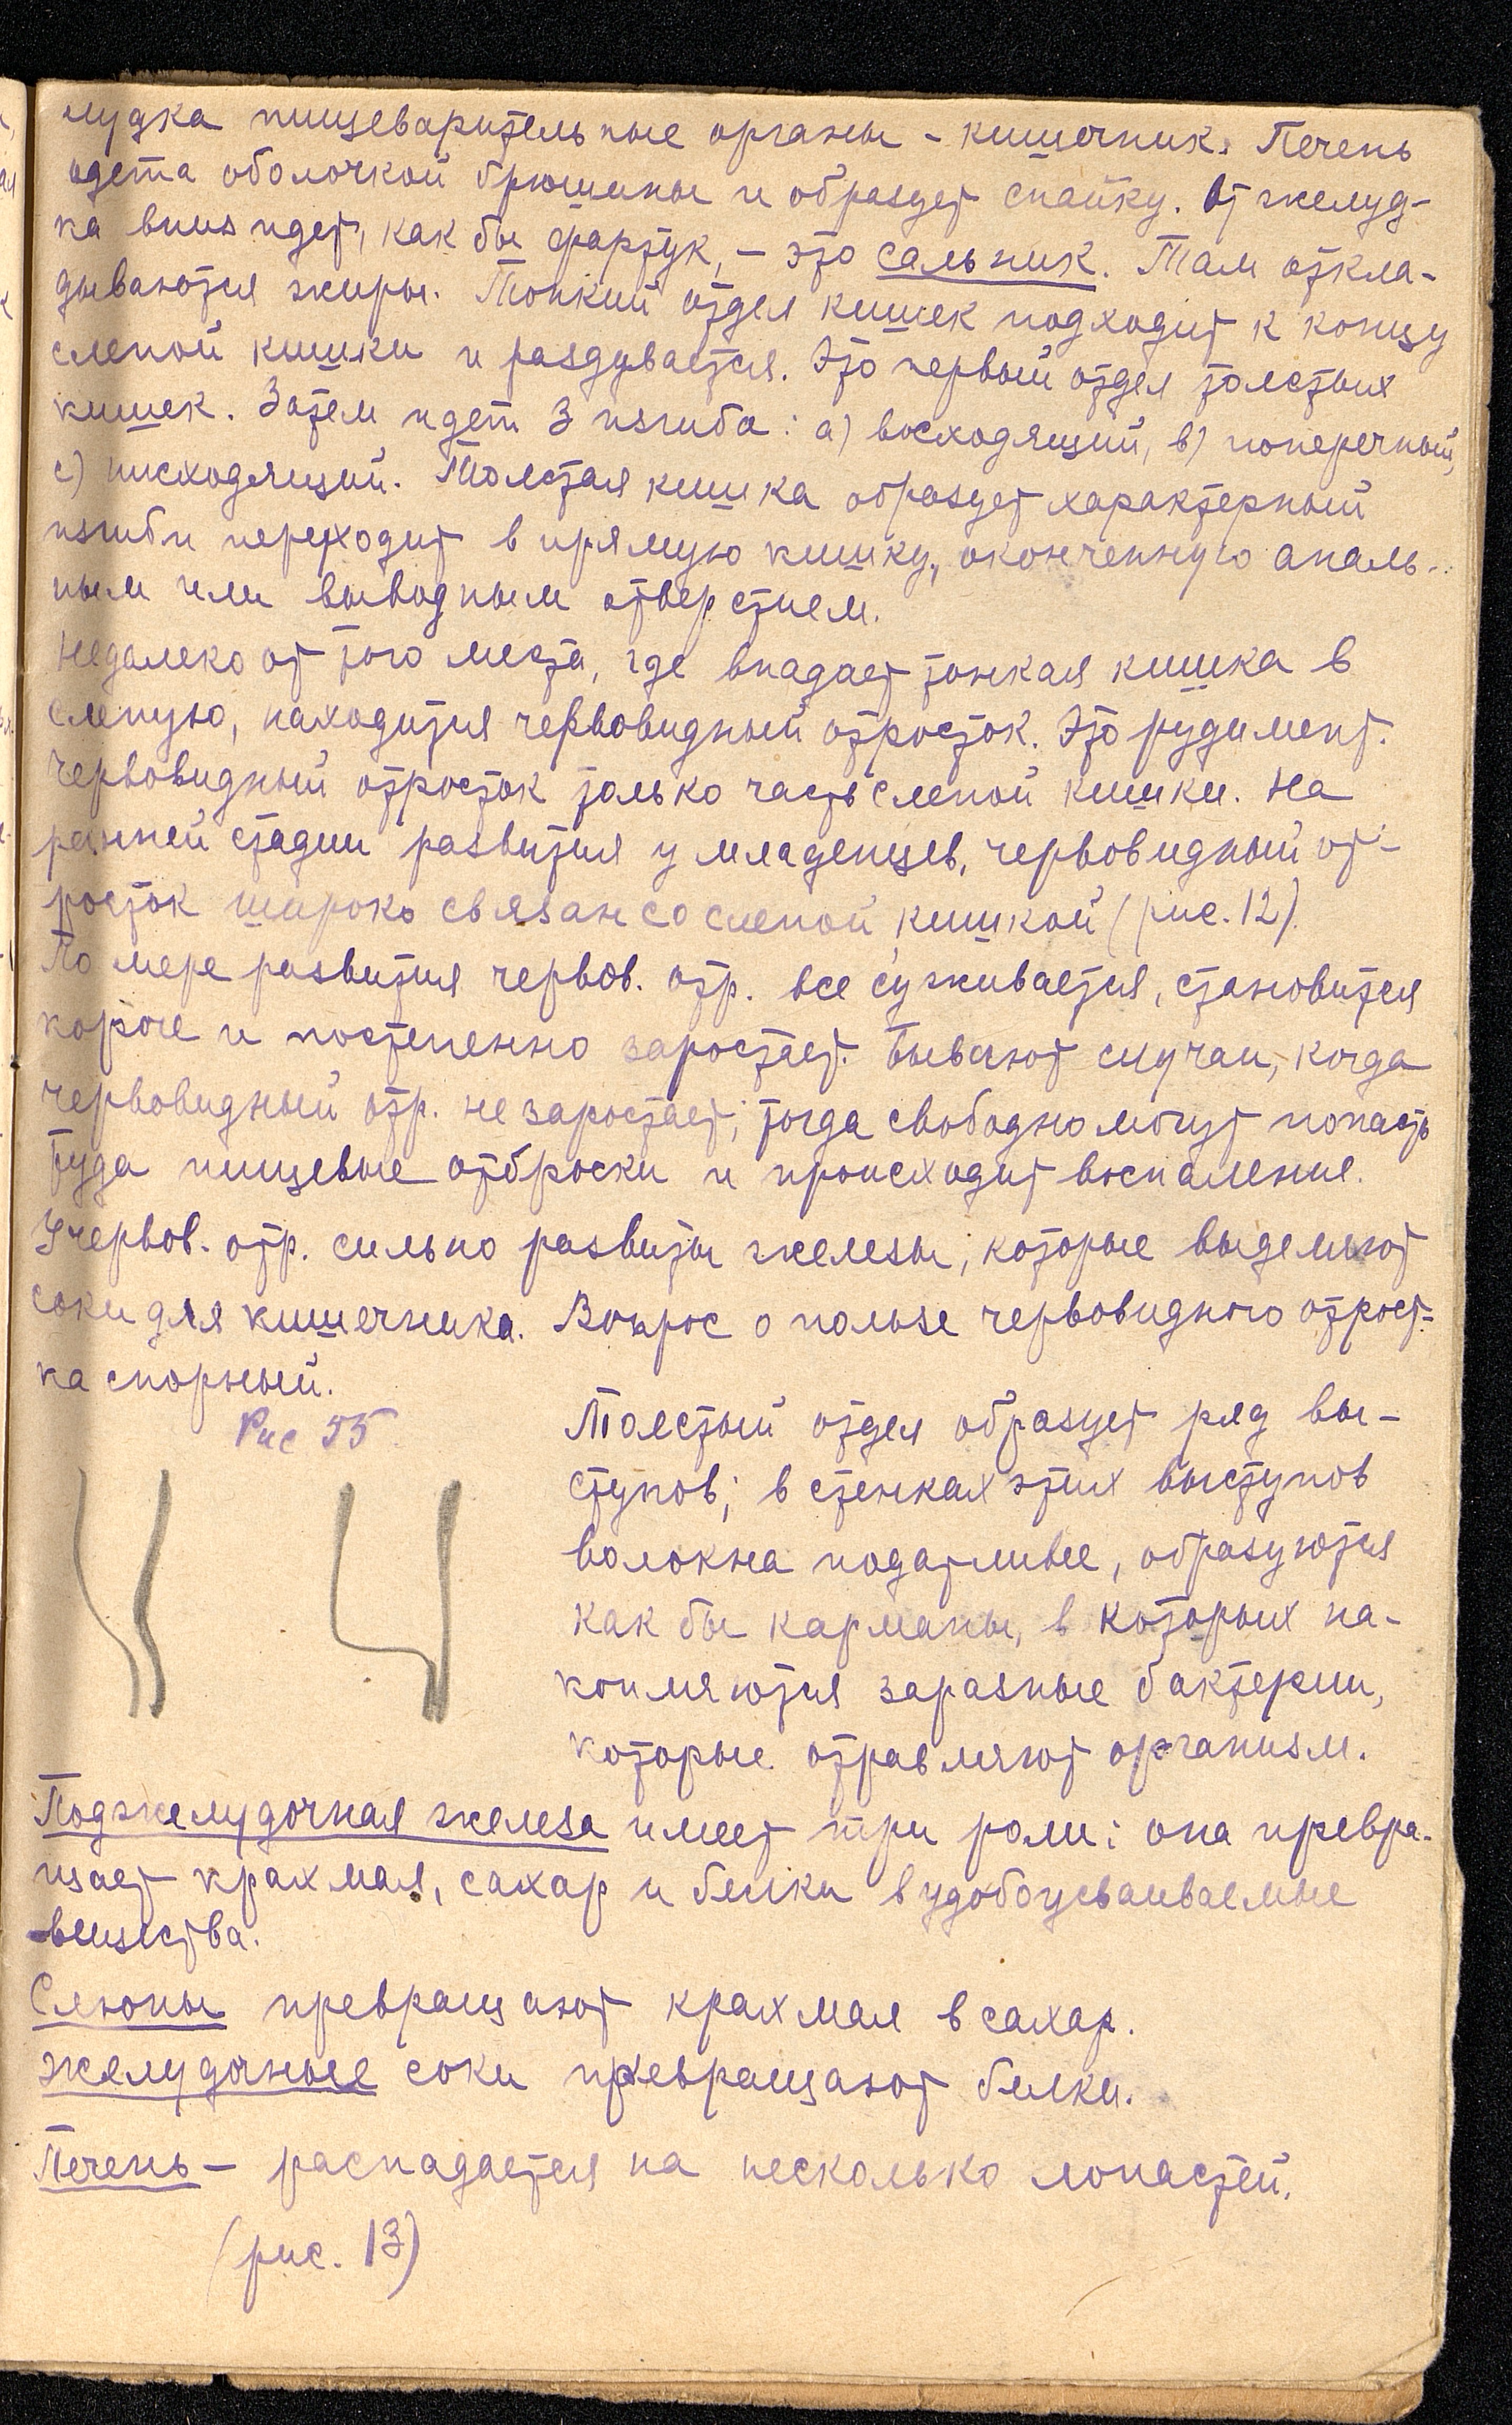 лудка пищеварительные органы - кишечник. Печень
одета оболочкой брюшины и образует спайку. От желуд-
ка вниз идет, как бы фартук, - это сальник. Там откла-
дываются жиры. Тонкий отдел кишек подходит к концу
слепой кишки и раздувается. Это первый отдел толстых
кишек. Затем идет 3 изгиба: а) восходящий, в) поперечный,
с) нисходящий. Толстая кишка образует характерный
изгиб и переходит в прямую кишку, оконченную аналь-
ным или выводным отверстием.
Недалеко от того места, где впадает тонкая кишка в
слепую, находится червовидный отросток. Это рудимент.
Червовидный отросток только часть слепой кишки. На
ранней стадии развития у младенцев, червовидный от-
росток широко связан со слепой кишкой (рис. 12).
По мере развития червов. отр. все суживается, становится
короче и постепенно заростает. Бывают случаи, когда
червовидный отр. не заростает; тогда свободно могут попасть
туда пищевые отброски и происходит воспаление.
У червов. отр. сильно развиты железы, которые выделяют
соки для кишечника. Вопрос о пользе червовидного отрост-
ка спорный.
Рис 55
Толстый отдел образует ряд вы-
ступов; в стенках этих выступов
волокна податливее, образуются
как бы карманы, в которых на-
копляются заразные бактерии,
которые отравляют организм.
Поджелудочная железа имеет три роли: она превра-
щает крахмал, сахар и белки в удобоусваиваемые
вещества.
Слюны превращают крахмал в сахар.
Желудочные соки превращают белки.
Печень - распадается на несколько лопастей.
(рис. 13)